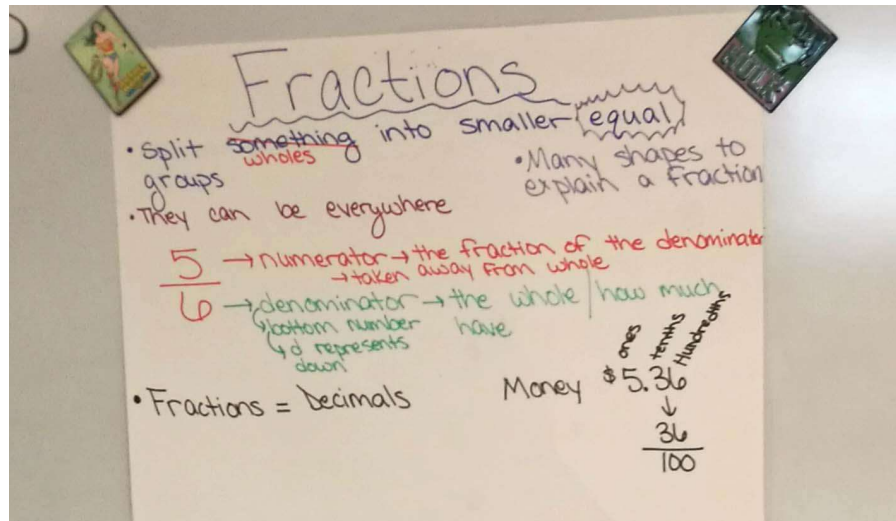 Fractions
• Split something into smaller equal
wholes
groups
• Many shapes to
explain a fraction
• They can be everywhere
5 → numerator → the fraction of the denominator
→ taken away from whole
6 → denominator → the whole / how much
↳ bottom number have
↳ d represents
down
• Fractions = Decimals
ones tenths Hundredths
Money $5.36
↓
36
100